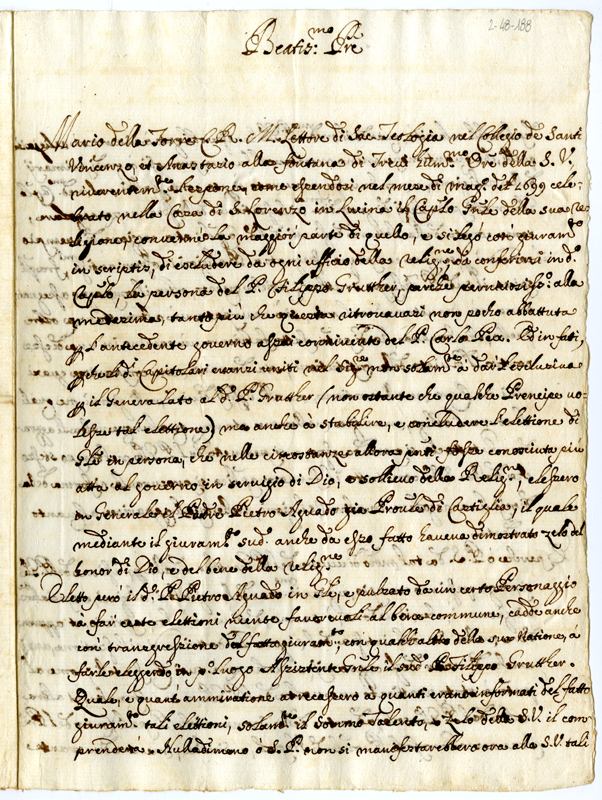 2-48-188
Beatis:mo Pre
Mario della Torre C.R. M. Lettore di Sac. Teologia nel Collegio de Santi
Vincenzo, et Anastasio alla fontana di Trevi hum.mo Ore della S. V.
riverentem.te espone, come essendosi nel mese di mag.o del 1699 cele-
brato nella Casa di S. Lorenzo in Lucina il Caplo Gnle della sua Re-
ligione, convenne la maggior parte di quello, e si legò con giuram.to
in scriptis, di escludere da ogni uffitio della Relig.ne da conferirsi in d.o
Caplo, la persona del P. Filippo Grutther, perche perniciosis.o alla
medesima, tanto più che questa ritrovavasi non poco abbattuta
p l'antecedente governo assai convincente del P. Carlo Rea. Ed in fatti,
Capitolari evanzi uniti nel non solam.te a dar l'esclusiva
p il Generalato al d.o P. Grutther (non ostante che qualche Prencipe vo-
lesse tal elettione) ma anche à stabilire, e concludere l'elettione di
Gle in persona, che nelle circostanze allora pnti fosse conosciuta più
atta al governo in servigio di Dio, e sollievo della Relig.ne, elessero
in Generale il Padre Pietro Aguado già Provle di Castiglia, il quale
mediante il giuram.to sud.o anche da esso fatto haveva dimostrato zelo del
honor di Dio, e del bene della Relig.ne
Eletto però il d.o P. Pietro Aguado in Gle, e spalzato da un certo Personaggio
à far certe elettioni niente favorevoli al bene commune, cadde anche
con transgressione del fatto giuram.to, con qualch'altro della sua Natione, à
farle eleggere in p.o luogo Assistente Gnle il sud.o P. Filippo Grutther.
Quale, e quant'ammiratione arrecassero a quanti erano informati del fatto
giuram.to tali elettioni, solam.te il sommo talento, e zelo della S.V. il com-
prenderà. Nulladimeno ò S. P. non si manifestarebbero ora alla S.V. tali